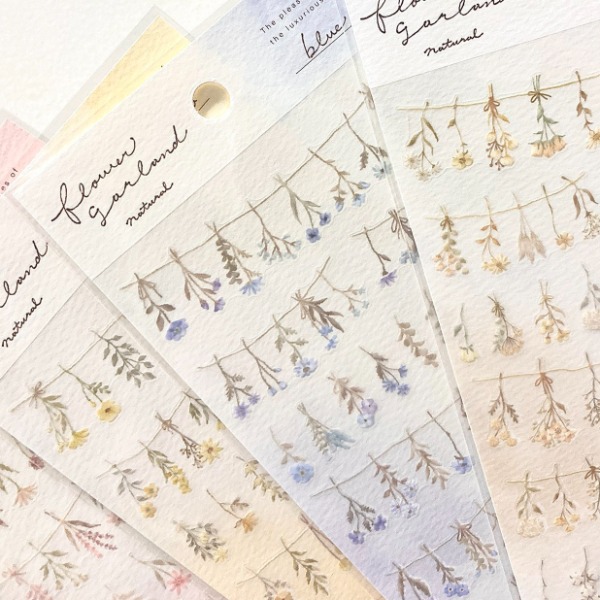 es of
land
natural
flower
garland
natural
The pleas
the luxurious
blue
flow
garland
natural